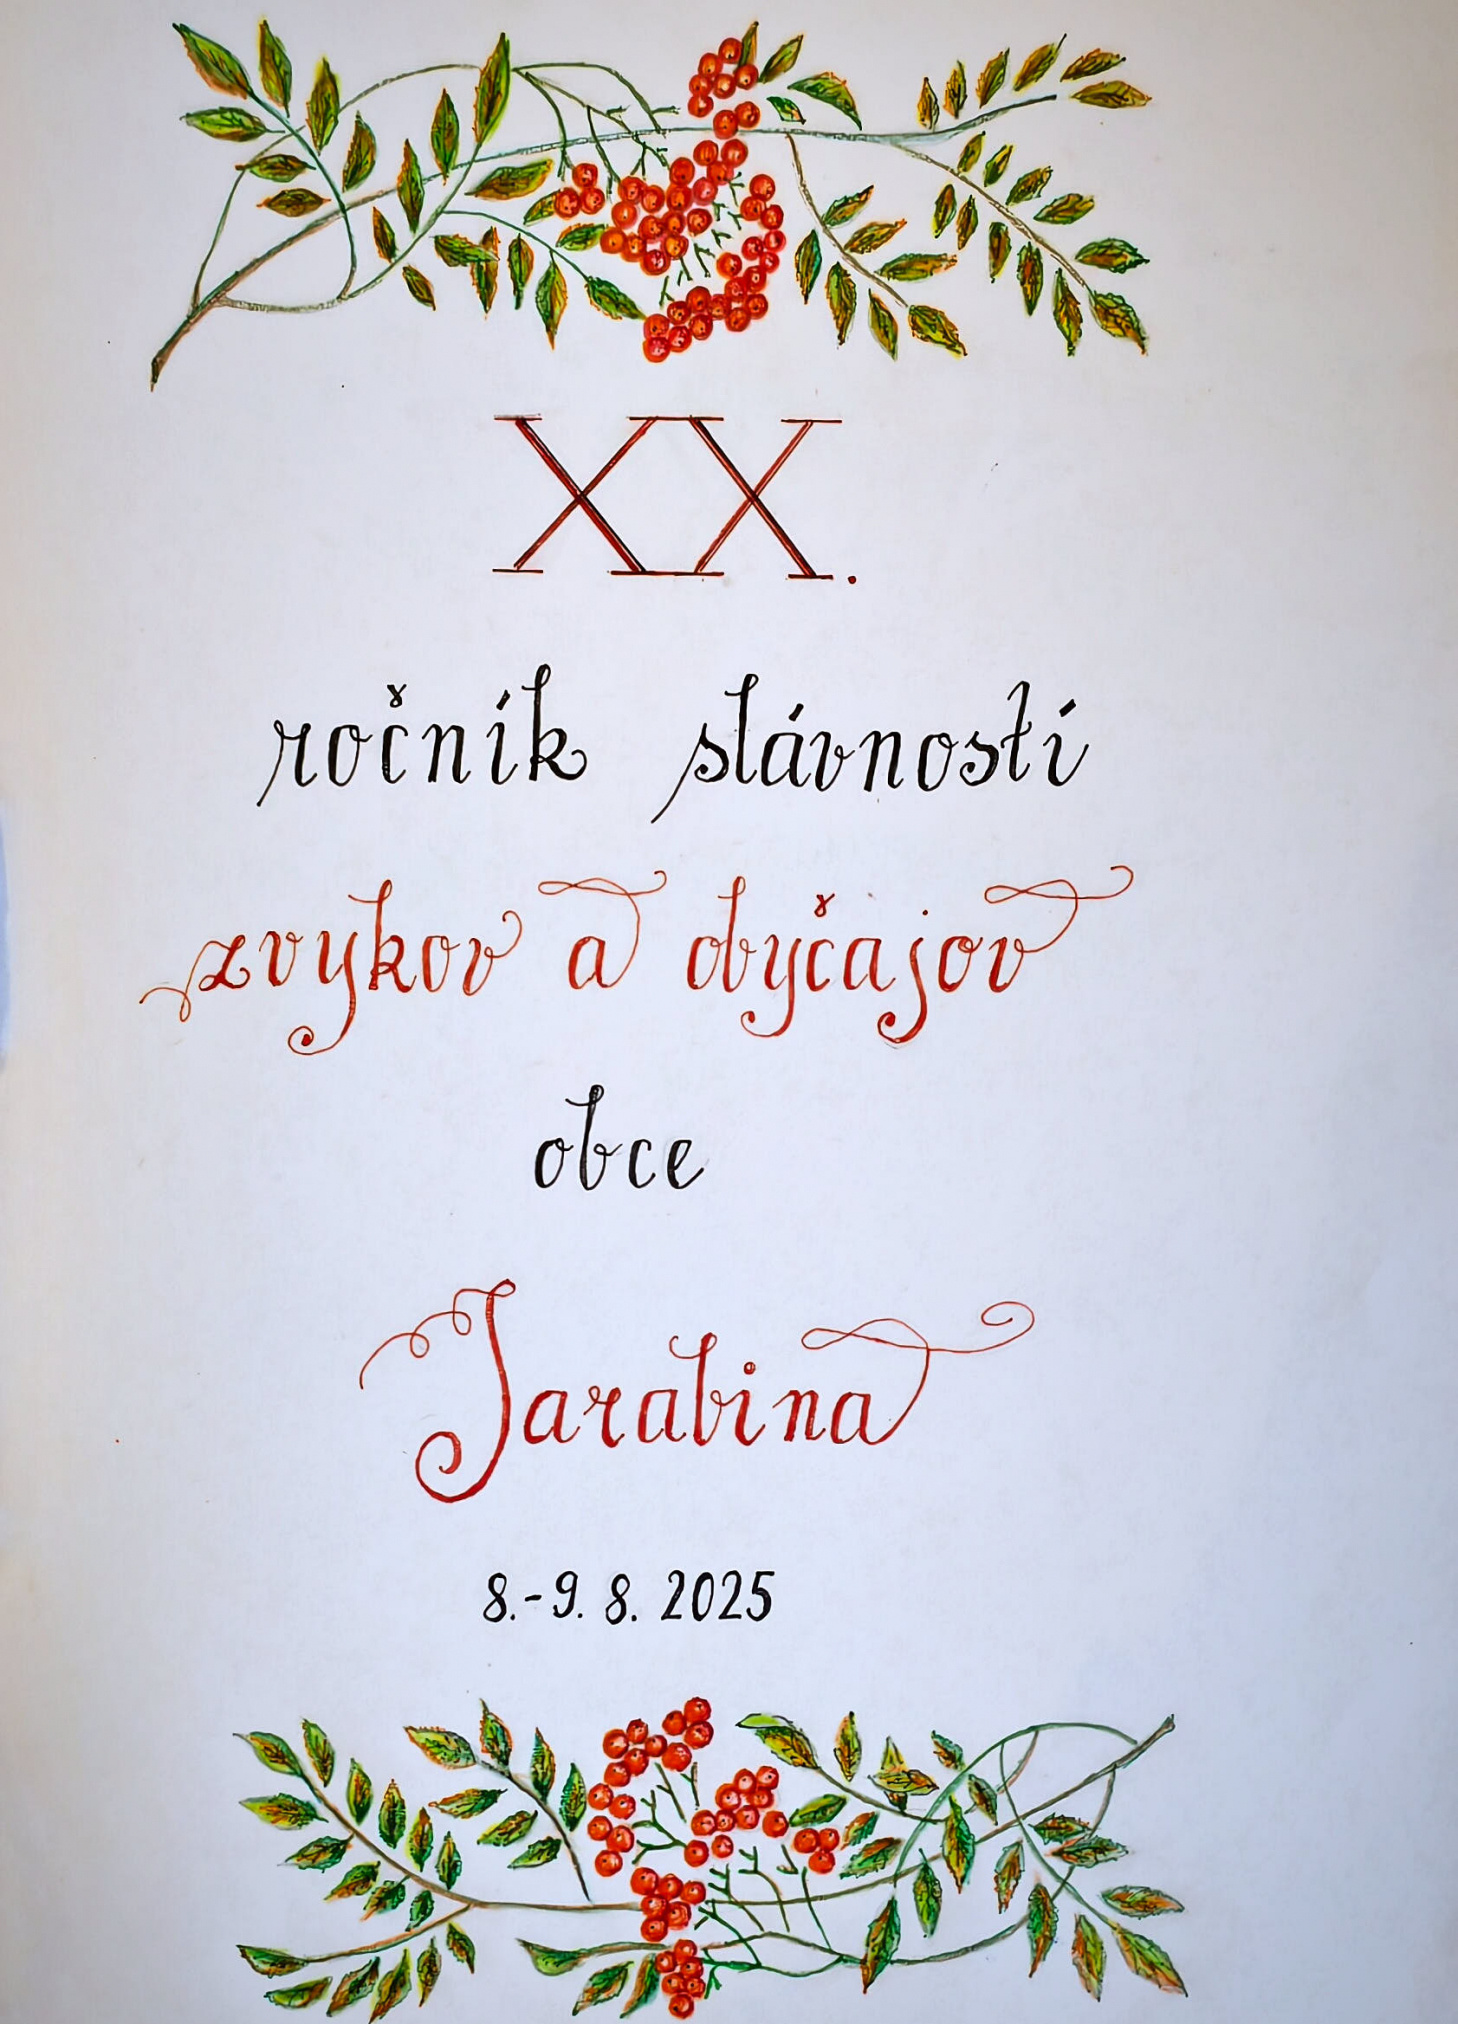 XX.
ročník slávností
zvykov a obyčajov
obce
Jarabina
8.-9. 8. 2025